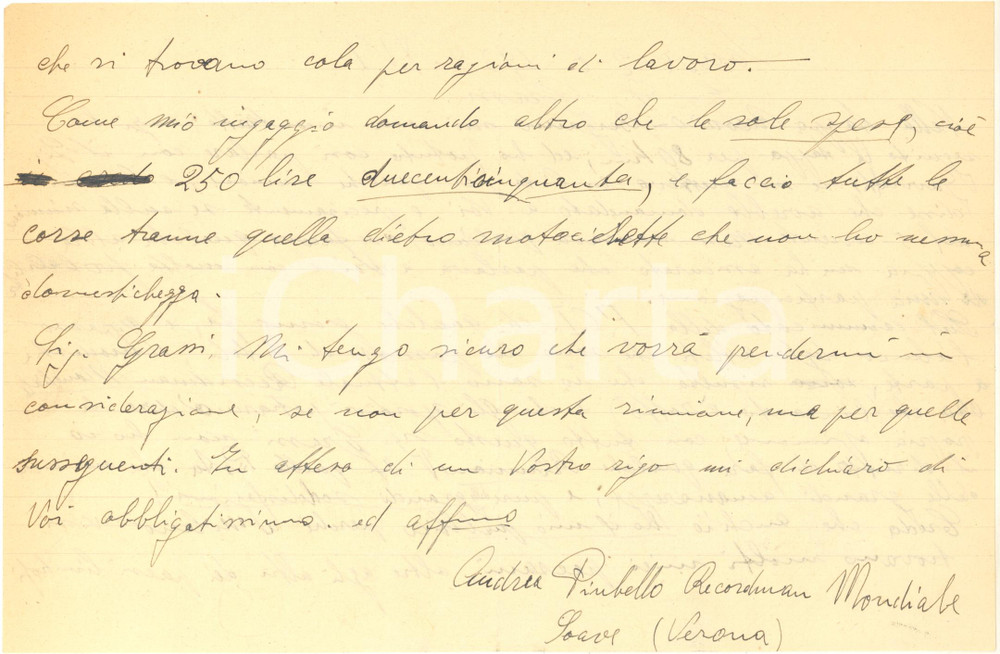 che si trovano cola per ragioni di lavoro.
Come mio ingaggio domando altro che le sole spese, cioè
250 lire duecentocinquanta, e faccio tutte le
corse tranne quella dietro motociclette che non ho nessuna
domestichezza.
Sig. Grassi. Mi tengo sicuro che vorrà pendermi in
considerazione, se non per questa riunione, ma per quelle
susseguenti. In attesa di un Vostro rigo mi dichiaro di
Voi obbligatissimo. ed affmo
Andrea Pinbello Recordman Mondiale
Soave (Verona)
iCharta